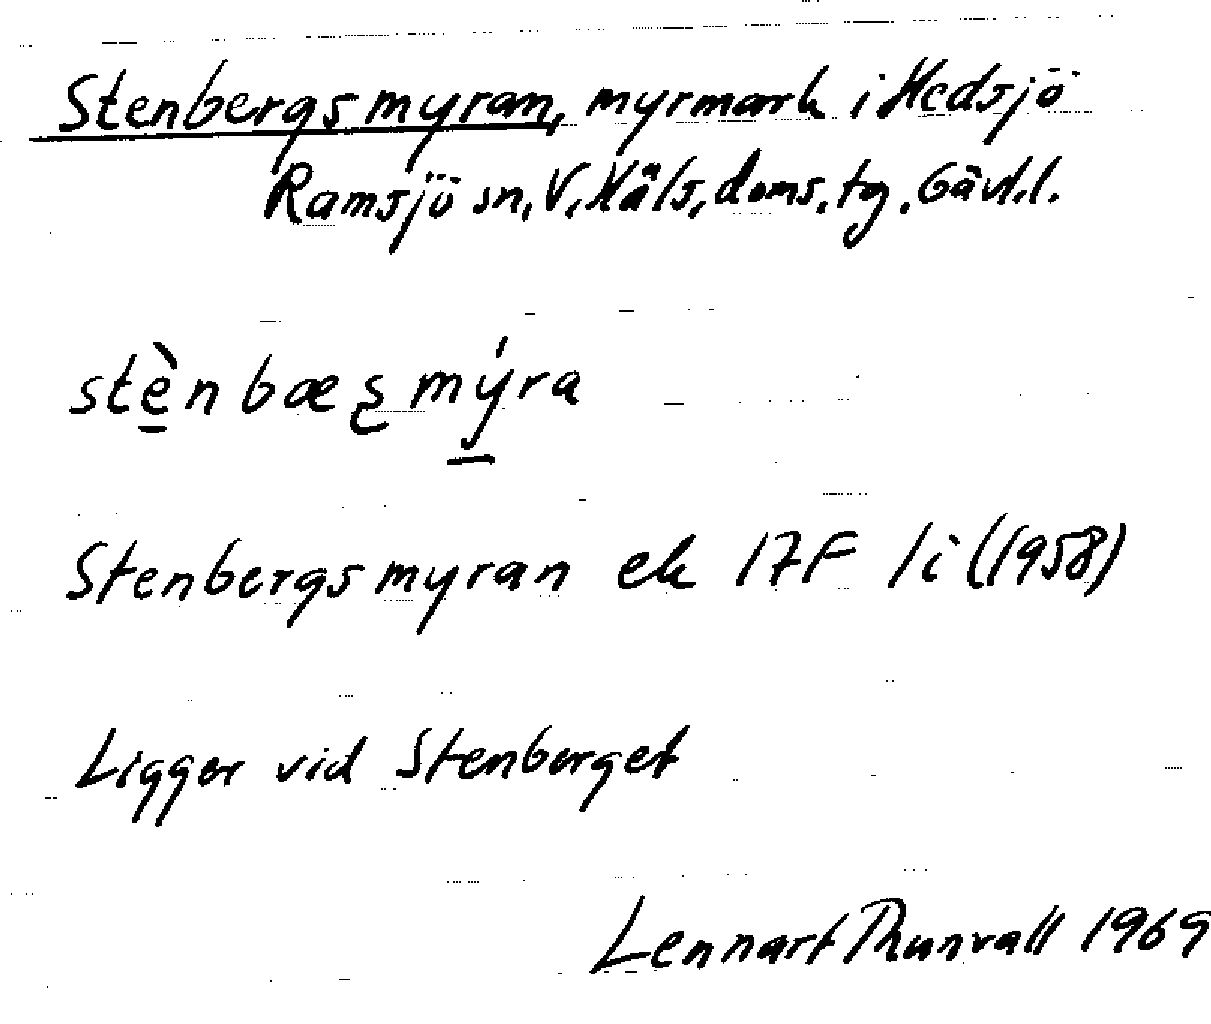 Stenbergsmyran, myrmark i Hedsjö
Ramsjö sn, V. Häls, doms. tg. Gävl.l.
stè̠nbæʂmý̠ra
Stenbergsmyran ek 17F 1i (1958)
Ligger vid Stenberget
Lennart Thunvall 1969